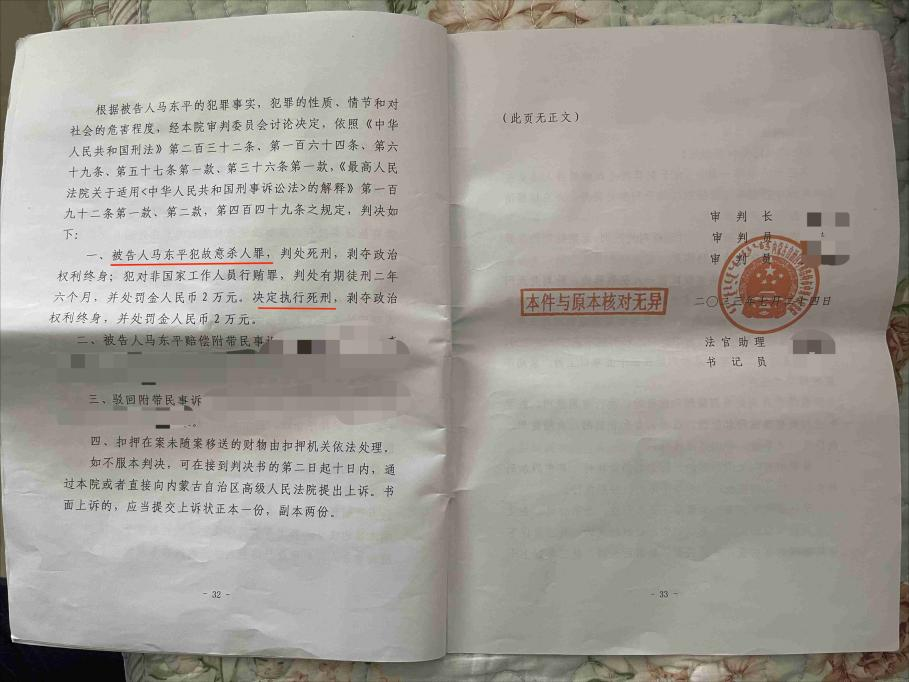 根据被告人马东平的犯罪事实，犯罪的性质、情节和对
社会的危害程度，经本院审判委员会讨论决定，依照《中华
人民共和国刑法》第二百三十二条、第一百六十四条、第六
十九条、第五十七条第一款、第三十六条第一款，《最高人民
法院关于适用<中华人民共和国刑事诉讼法>的解释》第一百
九十二条第一款、第二款，第四百四十九条之规定，判决如
下：
一、被告人马东平犯故意杀人罪，判处死刑，剥夺政治
权利终身；犯对非国家工作人员行贿罪，判处有期徒刑二年
六个月，并处罚金人民币2万元。决定执行死刑，剥夺政治
权利终身，并处罚金人民币2万元。
二、被告人马东平赔偿附带民事
三、驳回附带民事诉
四、扣押在案未随案移送的财物由扣押机关依法处理。
如不服本判决，可在接到判决书的第二日起十日内，通
过本院或者直接向内蒙古自治区高级人民法院提出上诉。书
面上诉的，应当提交上诉状正本一份，副本两份。
- 32 -
（此页无正文）
审 判 长
审 判 员
审 判 员
本件与原本核对无异
二〇二三年七月二十四日
法官助理
书 记 员
- 33 -